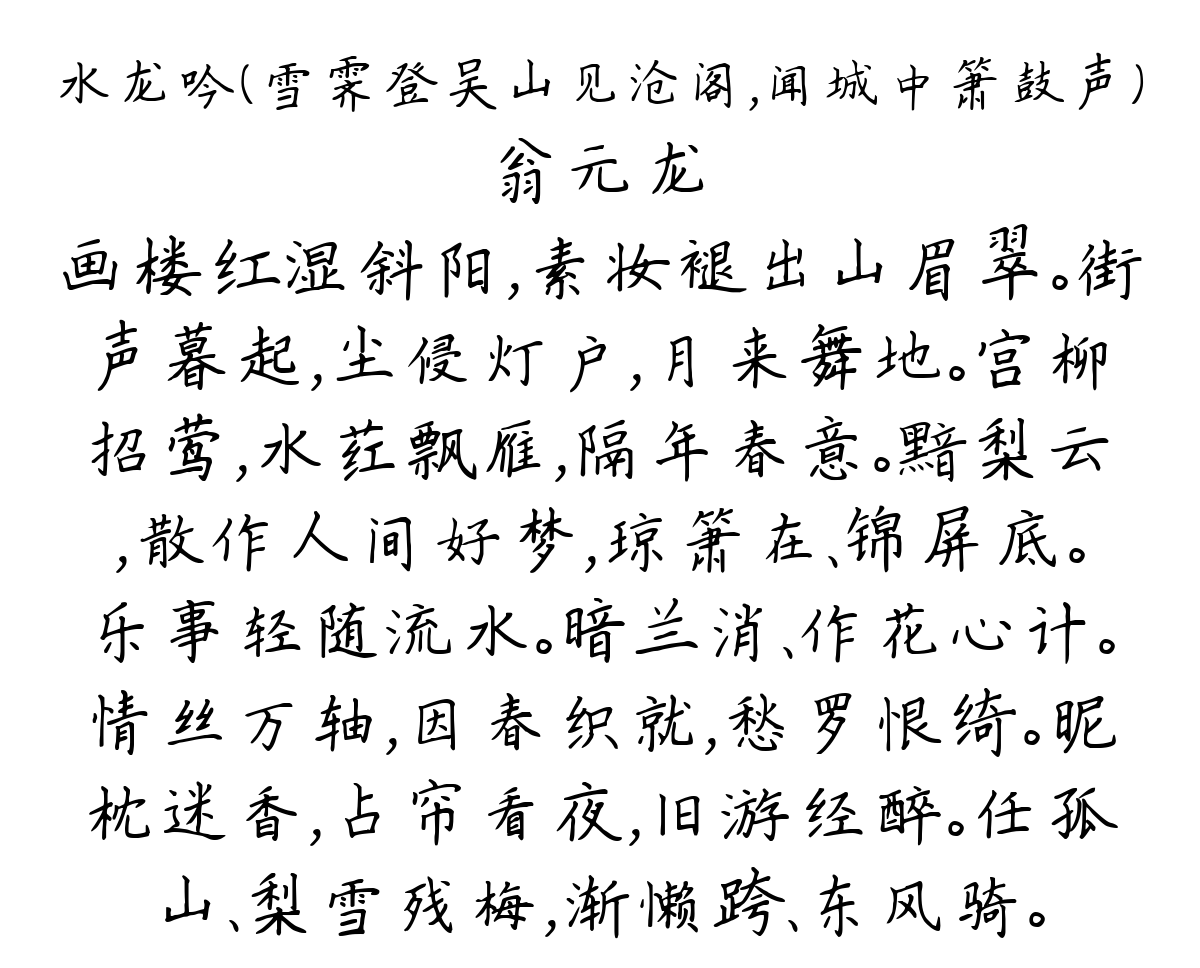 水龙吟(雪霁登吴山见沧阁,闻城中箫鼓声)
翁元龙
画楼红湿斜阳,素妆褪出山眉翠。街
声暮起,尘侵灯户,月来舞地。宫柳
招莺,水荭飘雁,隔年春意。黯梨云
,散作人间好梦,琼箫在、锦屏底。
乐事轻随流水。暗兰消、作花心计。
情丝万轴,因春织就,愁罗恨绮。昵
枕迷香,占帘看夜,旧游经醉。任孤
山、梨雪残梅,渐懒跨、东风骑。